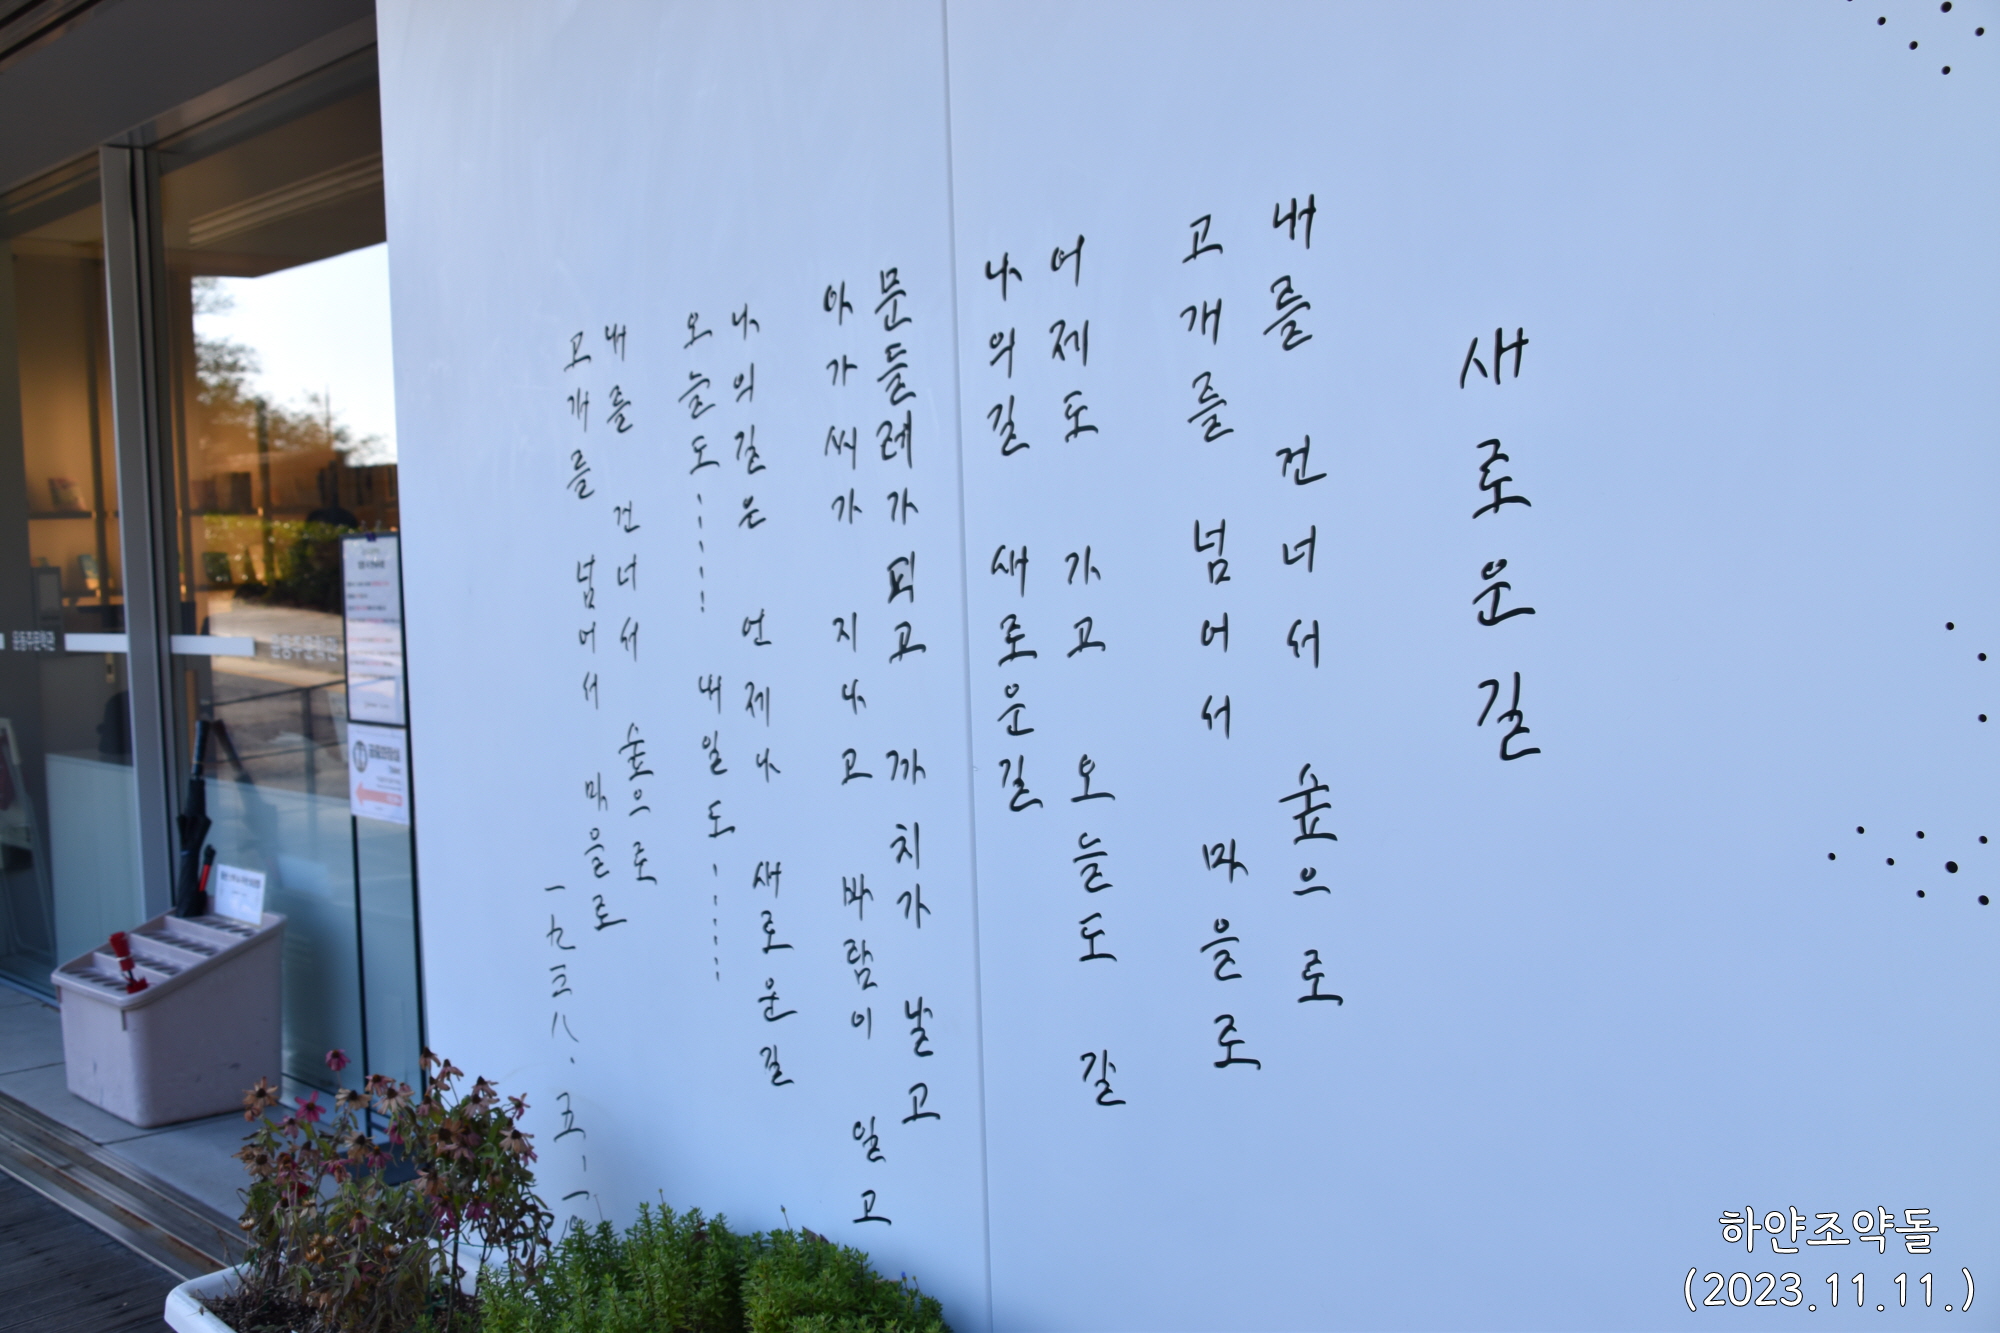 새로운 길
내를 건너서 숲으로
고개를 넘어서 마을로
어제도 가고 오늘도 갈
나의 길 새로운 길
문들레가 피고 까치가 날고
아가씨가 지나고 바람이 일고
나의 길은 언제나 새로운 길
오늘도…… 내일도……
내를 건너서 숲으로
고개를 넘어서 마을로
一九三八.五.一
윤동주문학관
윤동주문학관
하얀조약돌
(2023.11.11.)